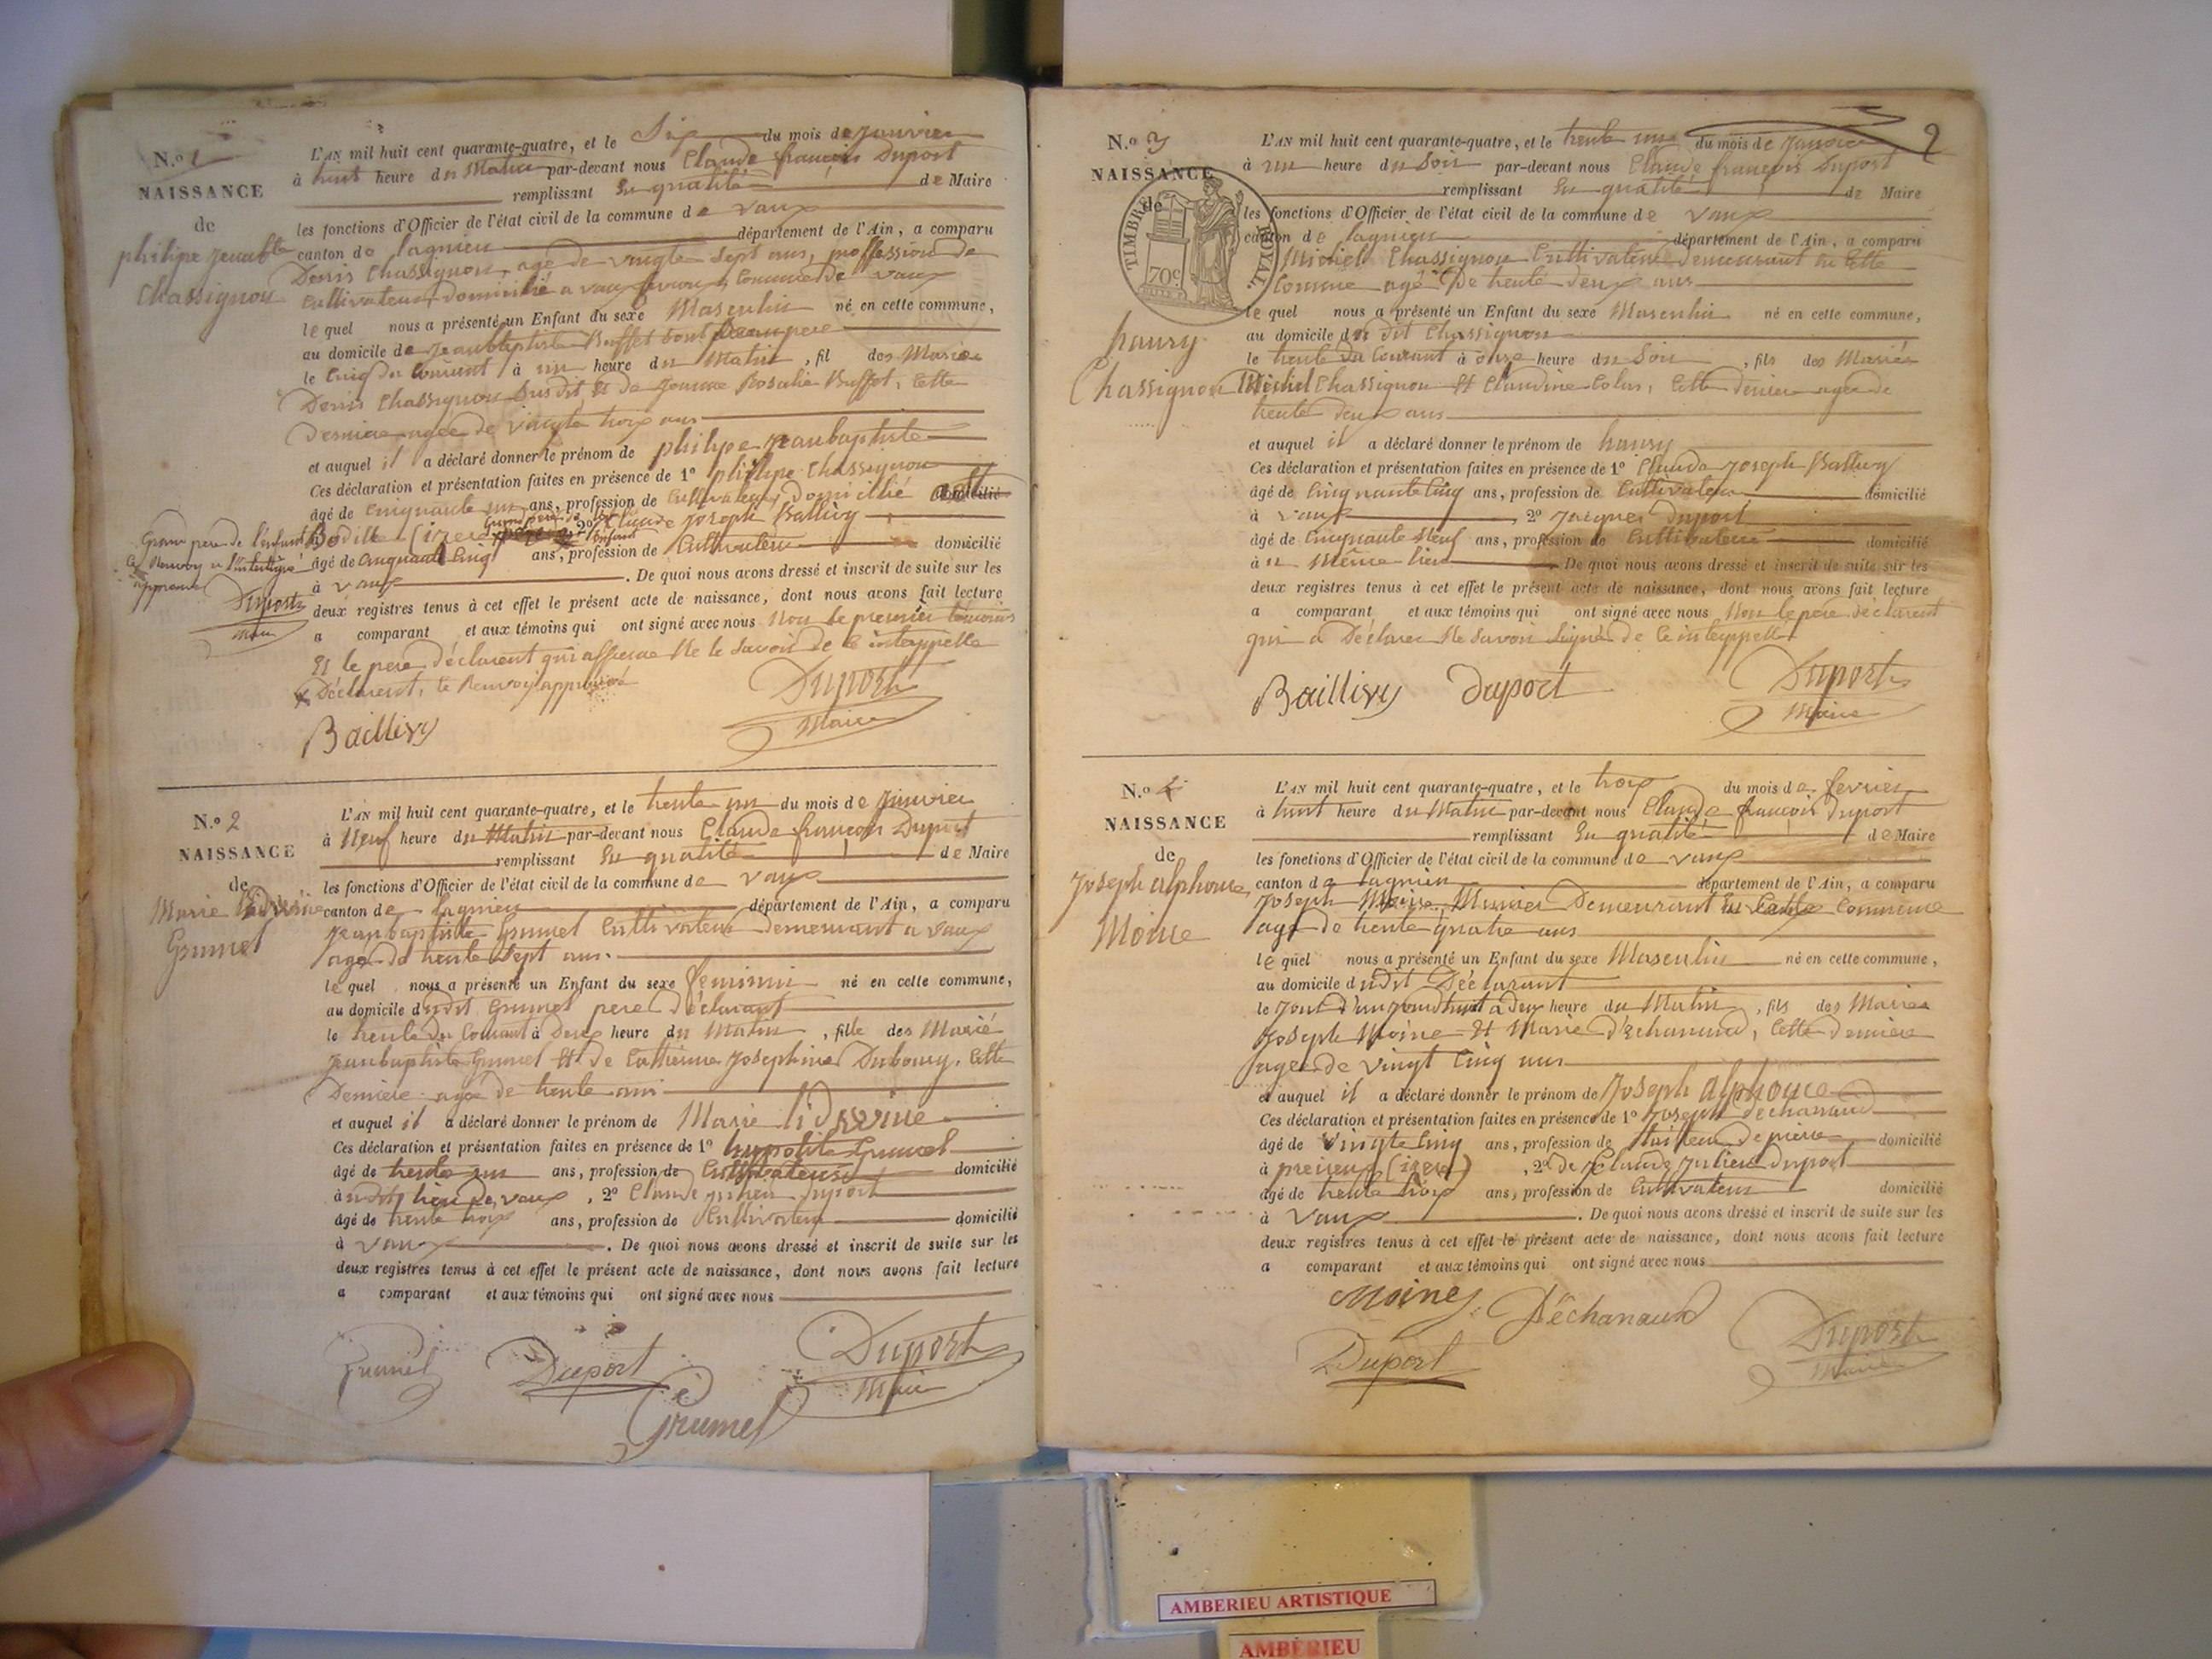 N.º 1
NAISSANCE
de
philipe Jeanbte
Chassignon
L'AN mil huit cent quarante-quatre, et le Six du mois de Janvier
à huit heure du Matin par-devant nous Claude françois Duport
remplissant En qualité de Maire
les fonctions d'Officier de l'état civil de la commune de vaux
canton de lagnieu département de l'Ain, a comparu
Denis Chassignon, agé de vingte Sept ans, proffession de
Cultivateur domicilié a vaux commune de vaux
le quel nous a présenté un Enfant du sexe Masculin né en cette commune,
au domicile de Jeanbaptiste Buffet Son Beaupere
le Cinq du Courant à un heure du Matin, fil des Mariés
Denis Chassignon Susdit Et de Jeanne Rosalie Buffet, Cette
Derniere agée de vingte trois ans
et auquel il a déclaré donner le prénom de philipe Jeanbaptiste
Ces déclaration et présentation faites en présence de 1º philipe Chassignon
âgé de Cinquante un ans, profession de Cultivateur domicilié
2º Claude Joseph Ballivy
Grand pere de l'enfant
Ce Renvoy
approuvé
Duport
Maire
âgé de Cinquante Cinq ans, profession de Cultivateur domicilié
à vaux . De quoi nous avons dressé et inscrit de suite sur les
deux registres tenus à cet effet le présent acte de naissance, dont nous avons fait lecture
a comparant et aux témoins qui ont signé avec nous Non le premier témoins
Et le pere déclarent qui afferme Ne le Savoir de Ce interppelle
Déclarent, le Renvoy approuvé
Duport
Maire
Baillivy
N.º 2
NAISSANCE
de
Marie
Grumet
L'AN mil huit cent quarante-quatre, et le trente un du mois de Janvier
à Neuf heure du Matin par-devant nous Claude françois Duport
remplissant En qualité de Maire
les fonctions d'Officier de l'état civil de la commune de vaux
canton de lagnieu département de l'Ain, a comparu
Jeanbaptiste Grumet Cultivateur demeurant a vaux
agé de trente Sept ans.
le quel nous a présenté un Enfant du sexe feminin né en cette commune,
au domicile dudit Grumet pere déclarant
le trente du Courant à Deux heure du Matin, fille des Marié
Jeanbaptiste Grumet Et de Catherine Josephine Dubourg, Cette
Derniere agée de trente ans
et auquel il a déclaré donner le prénom de Marie
Ces déclaration et présentation faites en présence de 1º hyppolite Grumet
âgé de trente un ans, profession de Cultivateur domicilié
à udit lieu de vaux, 2º Claude julien Duport
âgé de trente trois ans, profession de Cultivateur domicilié
à vaux . De quoi nous avons dressé et inscrit de suite sur les
deux registres tenus à cet effet le présent acte de naissance, dont nous avons fait lecture
a comparant et aux témoins qui ont signé avec nous
Grumet Duport Duport
Maire
Grumel
2
N.º 3
NAISSANCE
de
TIMBRE ROYAL
70c.
haury
Chassignon
L'AN mil huit cent quarante-quatre, et le trente un du mois de Janvier
à un heure du Soir par-devant nous Claude françois Duport
remplissant En qualité de Maire
les fonctions d'Officier de l'état civil de la commune de vaux
canton de lagnieu département de l'Ain, a comparu
Michel Chassignon Cultivateur demeurant en Cette
Comune agé De trente deux ans
le quel nous a présenté un Enfant du sexe Masculin né en cette commune,
au domicile du dit Chassignon
le trente du Courant à onze heure du Soir, fils des Mariés
Michel Chassignon Et Claudine Colus, Cette derniere agée de
trente deux ans
et auquel il a déclaré donner le prénom de haury
Ces déclaration et présentation faites en présence de 1º Claude Joseph Ballivy
âgé de Cinquante Cinq ans, profession de Cultivateur domicilié
à vaux , 2º Jacques Duport
âgé de Cinquante Neuf ans, profession de Cultivateur domicilié
à u Même lieu . De quoi nous avons dressé et inscrit de suite sur les
deux registres tenus à cet effet le présent acte de naissance, dont nous avons fait lecture
a comparant et aux témoins qui ont signé avec nous Non le pere déclarent
qui a Déclarer Ne Savoir Signé de Ce interppellé
Baillivy Duport Duport
Maire
N.º 4
NAISSANCE
de
Joseph alphonce
Moine
L'AN mil huit cent quarante-quatre, et le trois du mois de fevrier
à huit heure du Matin par-devant nous Claude françois Duport
remplissant En qualité de Maire
les fonctions d'Officier de l'état civil de la commune de vaux
canton de lagnieu département de l'Ain, a comparu
Joseph Moine, Demeurant En Cette Commune
agé de trente quatre ans
le quel nous a présenté un Enfant du sexe Masculin né en cette commune,
au domicile dudit Déclarant
le Jour d'aujourdhuit à deux heure du Matin, fils des Mariés
Joseph Moine Et Marie d'Echanaud, Cette derniere
agée de vingt Cinq ans
et auquel il a déclaré donner le prénom de Joseph alphonce
Ces déclaration et présentation faites en présence de 1º Joseph dechanaud
âgé de vingte Cinq ans, profession de tailleur de pierre domicilié
à (izere) , 2º de Claude Julien duport
âgé de trente trois ans, profession de Cultivateur domicilié
à vaux . De quoi nous avons dressé et inscrit de suite sur les
deux registres tenus à cet effet le présent acte de naissance, dont nous avons fait lecture
a comparant et aux témoins qui ont signé avec nous
Moine Déchanaud
Duport Duport
Maire
AMBERIEU ARTISTIQUE
AMBÉRIEU